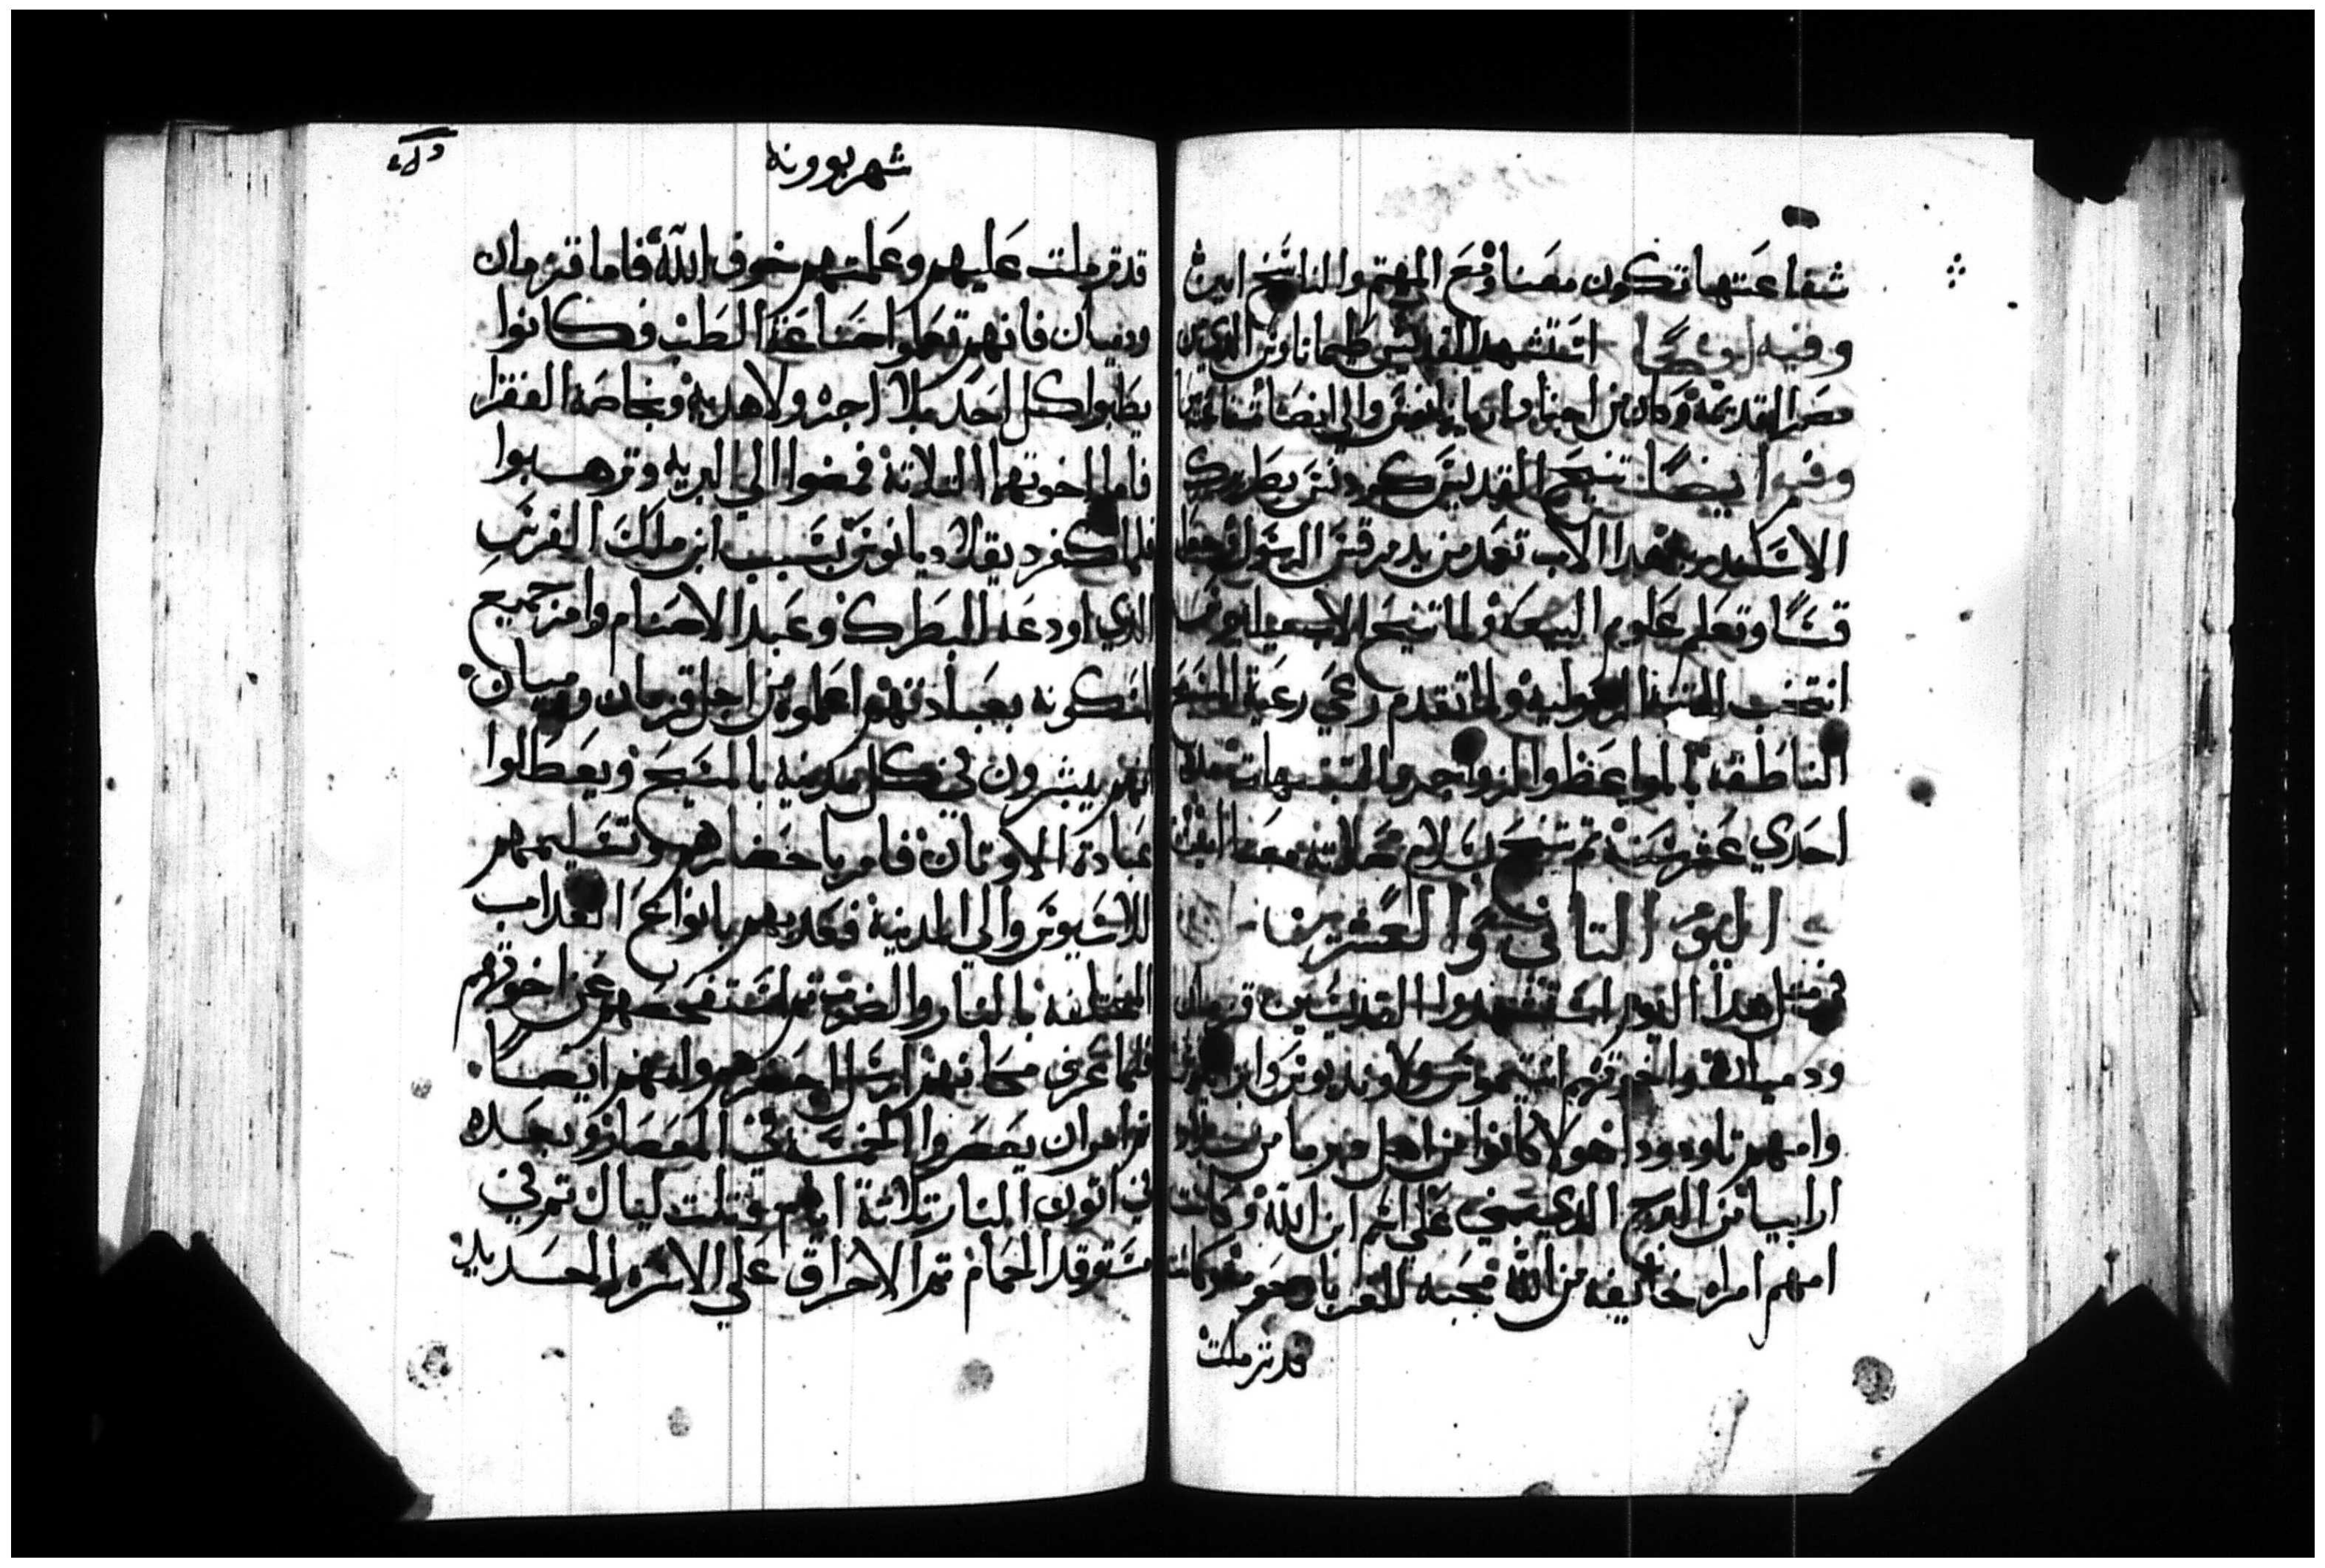 شفاعتها تكون معنا ومع المهتم والناسخ امين
وفيه ايضًا استشهد القديس طيماتاوس الذي من
مصر القديمة وكان من اجناد اريانوس والي انصنا شفاعته معنا
وفيه ايضًا تنيح القديس كردنوس بطريرك
الاسكندريه هدا الاب تعمد من يد مرقس الرسول
قسًا وتعلم علوم البيعة ولما تنيح الاب ميليوس
انتخب الرسوليه ولما تقدم رعي رعية المسيح
الناطقه بالمواعظ والزواجر والتنبيهات مدة
احدي عشر سنة تم تنيح بسلام صلاته معنا امين
اليوم التاني والعشرين
في متل هدا اليوم استشهدوا القديسين قزمان
ودميان واخوتهم انتيموس ولاونديوس وابرابيوس
وامهم تاوودودا هولا كانوا من اهل من بلاد
ارابيا الدي علي اسم ابن الله وكانت
امهم امراه خايفه من الله محبه للغربا وكانت
قد ترملت
شهر بوونه
قد ترملت عليهم وعلمتهم خوف الله فاما قزمان
ودميان فانهم تعلموا صناعة الطب وكانوا
يطببوا كل احد بلا اجره ولا هديه وبخاصه الفقرا
فاما اخوتهما التلاتة فمضوا الي البريه وترهبوا
فلما كفر ديقلاديانوس بسبب ابن ملك الفرس
الدي اودعه للبطرك وعبد الاصنام وامر جميع
المسكونه بعبادتهم اعلموه من اجل قزمان ودميان
انهم يبشرون في كل مدينه بالمسيح ويعطلوا
عبادة الاوتان فامر باحضارهم وتسليمهم
للاسيوس والي المدينة فعدبهم بانواع العداب
المختلفه بالنار والضرب تم استفحصهم عن اخوتهم
فلما عرف مكانهم ارسل احضرهم وامهم ايضًا
تم امر ان يعصروا الخمسة في المعصار وبعده
في اتون النار تلاتة ايام وتلت ليال تم في
مستوقد الحمام تم الاحراق علي الاسره الحديد